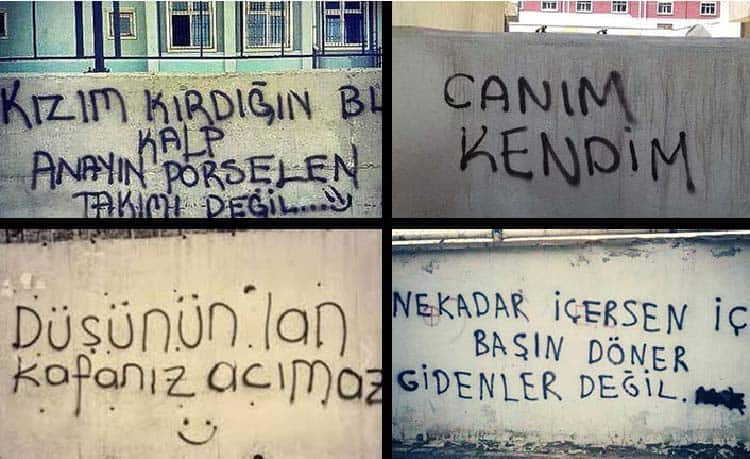 KIZIM KIRDIĞIN BU
KALP
ANAYIN PORSELEN
TAKIMI DEĞİL....
CANIM
KENDİM
Düşünün lan
kafanız acımaz
NEKADAR İÇERSEN İÇ
BAŞIN DÖNER
GİDENLER DEĞİL.